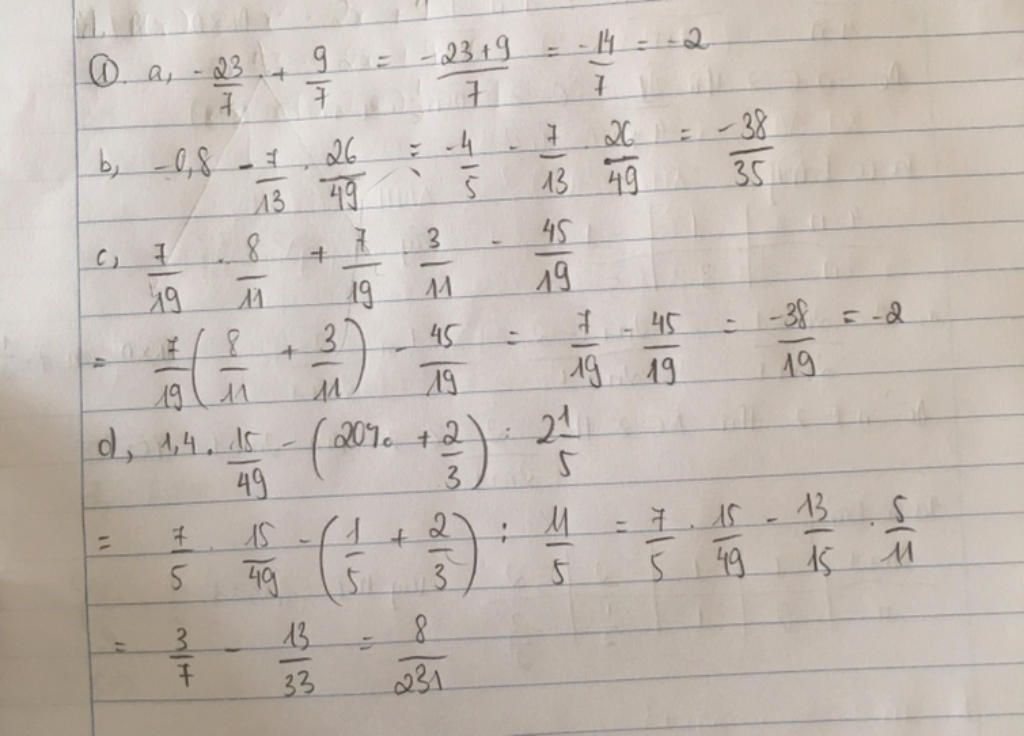 ① a, -23/7 + 9/7 = -23+9/7 = -14/7 = -2
b, -0,8 - 7/13 . 26/49 = -4/5 - 7/13 . 26/49 = -38/35
c, 7/19 . 8/11 + 7/19 . 3/11 - 45/19
= 7/19 (8/11 + 3/11) - 45/19 = 7/19 - 45/19 = -38/19 = -2
d, 1,4 . 15/49 - (20% + 2/3) : 2 1/5
= 7/5 . 15/49 - (1/5 + 2/3) : 11/5 = 7/5 . 15/49 - 13/15 . 5/11
= 3/7 - 13/33 = 8/231